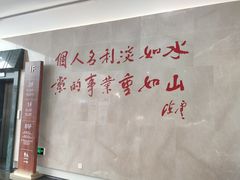 個人名利淡如水
黨的事業重如山
陈雲
1F